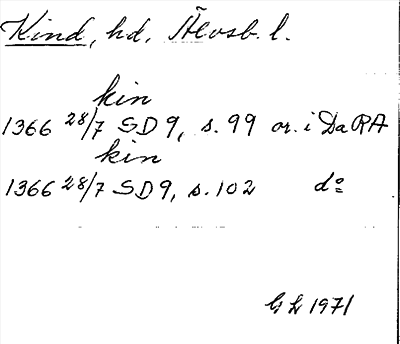 Kind, hd, Älvsb. l.
kin
1366 28/7 SD 9, s. 99 or. i DaRA
kin
1366 28/7 SD 9, s. 102 do
G L 1971